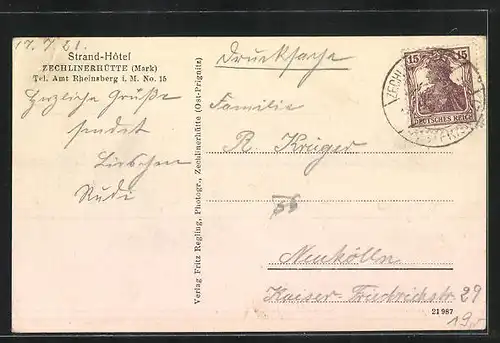 17.7.21.
Strand-Hôtel
ZECHLINERHÜTTE (Mark)
Tel. Amt Rheinsberg i. M. No. 15
Herzliche Grüße
sendet
Lieschen
Rudi
Verlag Fritz Regling, Photogr., Zechlinerhütte (Ost-Prignitz)
Drucksache
15 15
DEUTSCHES REICH
Familie
R. Krüger
Neukölln
Kaiser-Friedrichstr 29
21987